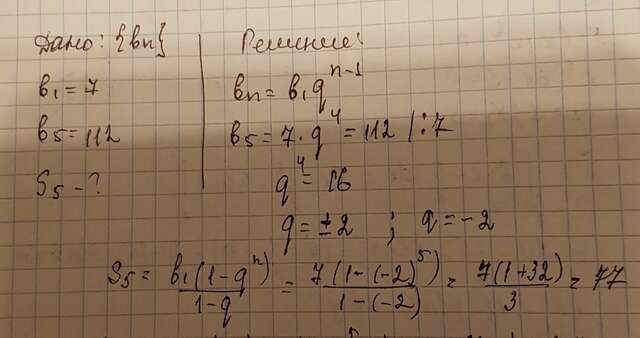 Дано: {bn}
b₁ = 7
b₅ = 112
S₅ - ?
Решение:
bn = b₁q^(n-1)
b₅ = 7 · q⁴ = 112 | : 7
q⁴ = 16
q = ± 2 ; q = - 2
S₅ = b₁(1 - qⁿ)/(1 - q) = 7(1 - (-2)⁵)/(1 - (-2)) = 7(1 + 32)/3 = 77